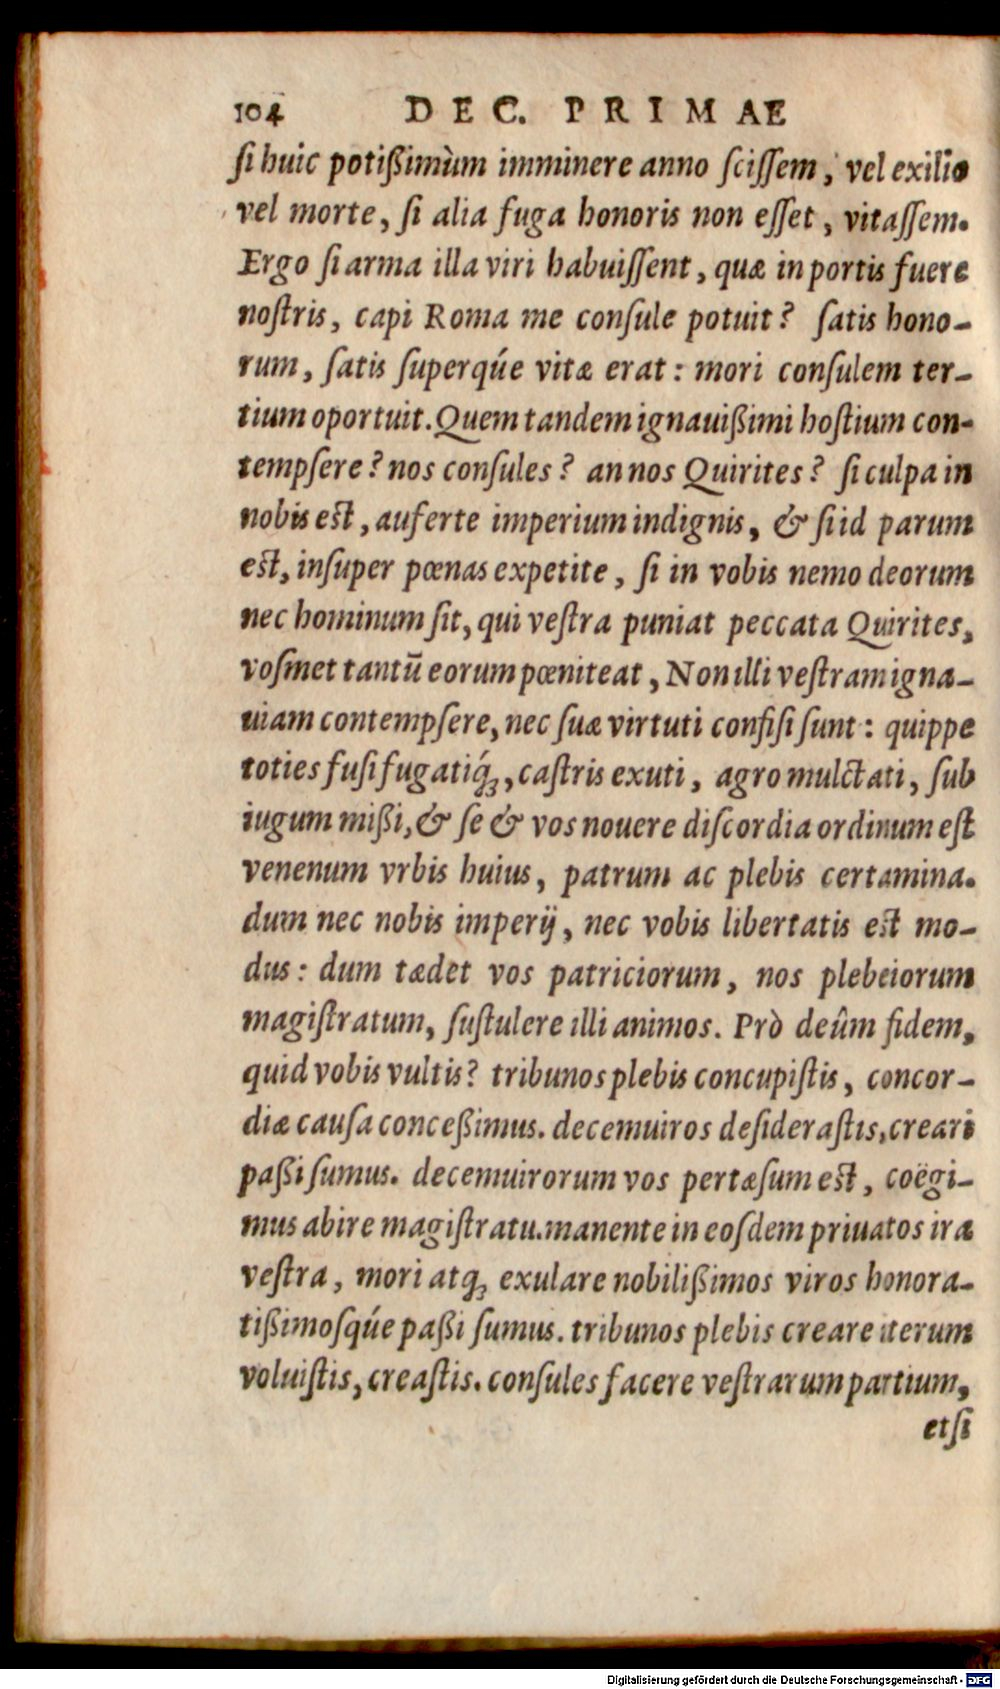 104 DEC. PRIMAE
ſi huic potißimùm imminere anno ſciſſem, vel exilio
vel morte, ſi alia fuga honoris non eſſet, vitaſſem.
Ergo ſi arma illa viri habuiſſent, quæ in portis fuere
noſtris, capi Roma me conſule potuit? ſatis hono-
rum, ſatis ſuperqúe vitæ erat: mori conſulem ter-
tium oportuit. Quem tandem ignauißimi hoſtium con-
tempſere? nos conſules? an nos Quirites? ſi culpa in
nobis eſt, auferte imperium indignis, & ſi id parum
eſt, inſuper pœnas expetite, ſi in vobis nemo deorum
nec hominum ſit, qui veſtra puniat peccata Quirites,
voſmet tantū eorum pœniteat, Non illi veſtram igna-
uiam contempſere, nec ſuæ virtuti confiſi ſunt: quippe
toties fuſi fugatiq́ꝫ, caſtris exuti, agro mulctati, ſub
iugum mißi, & ſe & vos nouere diſcordia ordinum eſt
venenum vrbis huius, patrum ac plebis certamina.
dum nec nobis imperij, nec vobis libertatis eſt mo-
dus: dum tædet vos patriciorum, nos plebeiorum
magiſtratum, ſuſtulere illi animos. Prò deûm fidem,
quid vobis vultis? tribunos plebis concupiſtis, concor-
diæ cauſa conceßimus. decemuiros deſideraſtis, creari
paßi ſumus. decemuirorum vos pertæſum eſt, coëgi-
mus abire magiſtratu. manente in eoſdem priuatos ira
veſtra, mori atqꝫ exulare nobilißimos viros honora-
tißimoſqúe paßi ſumus. tribunos plebis creare iterum
voluiſtis, creaſtis. conſules facere veſtrarum partium,
etſi
Digitalisierung gefördert durch die Deutsche Forschungsgemeinschaft - DFG